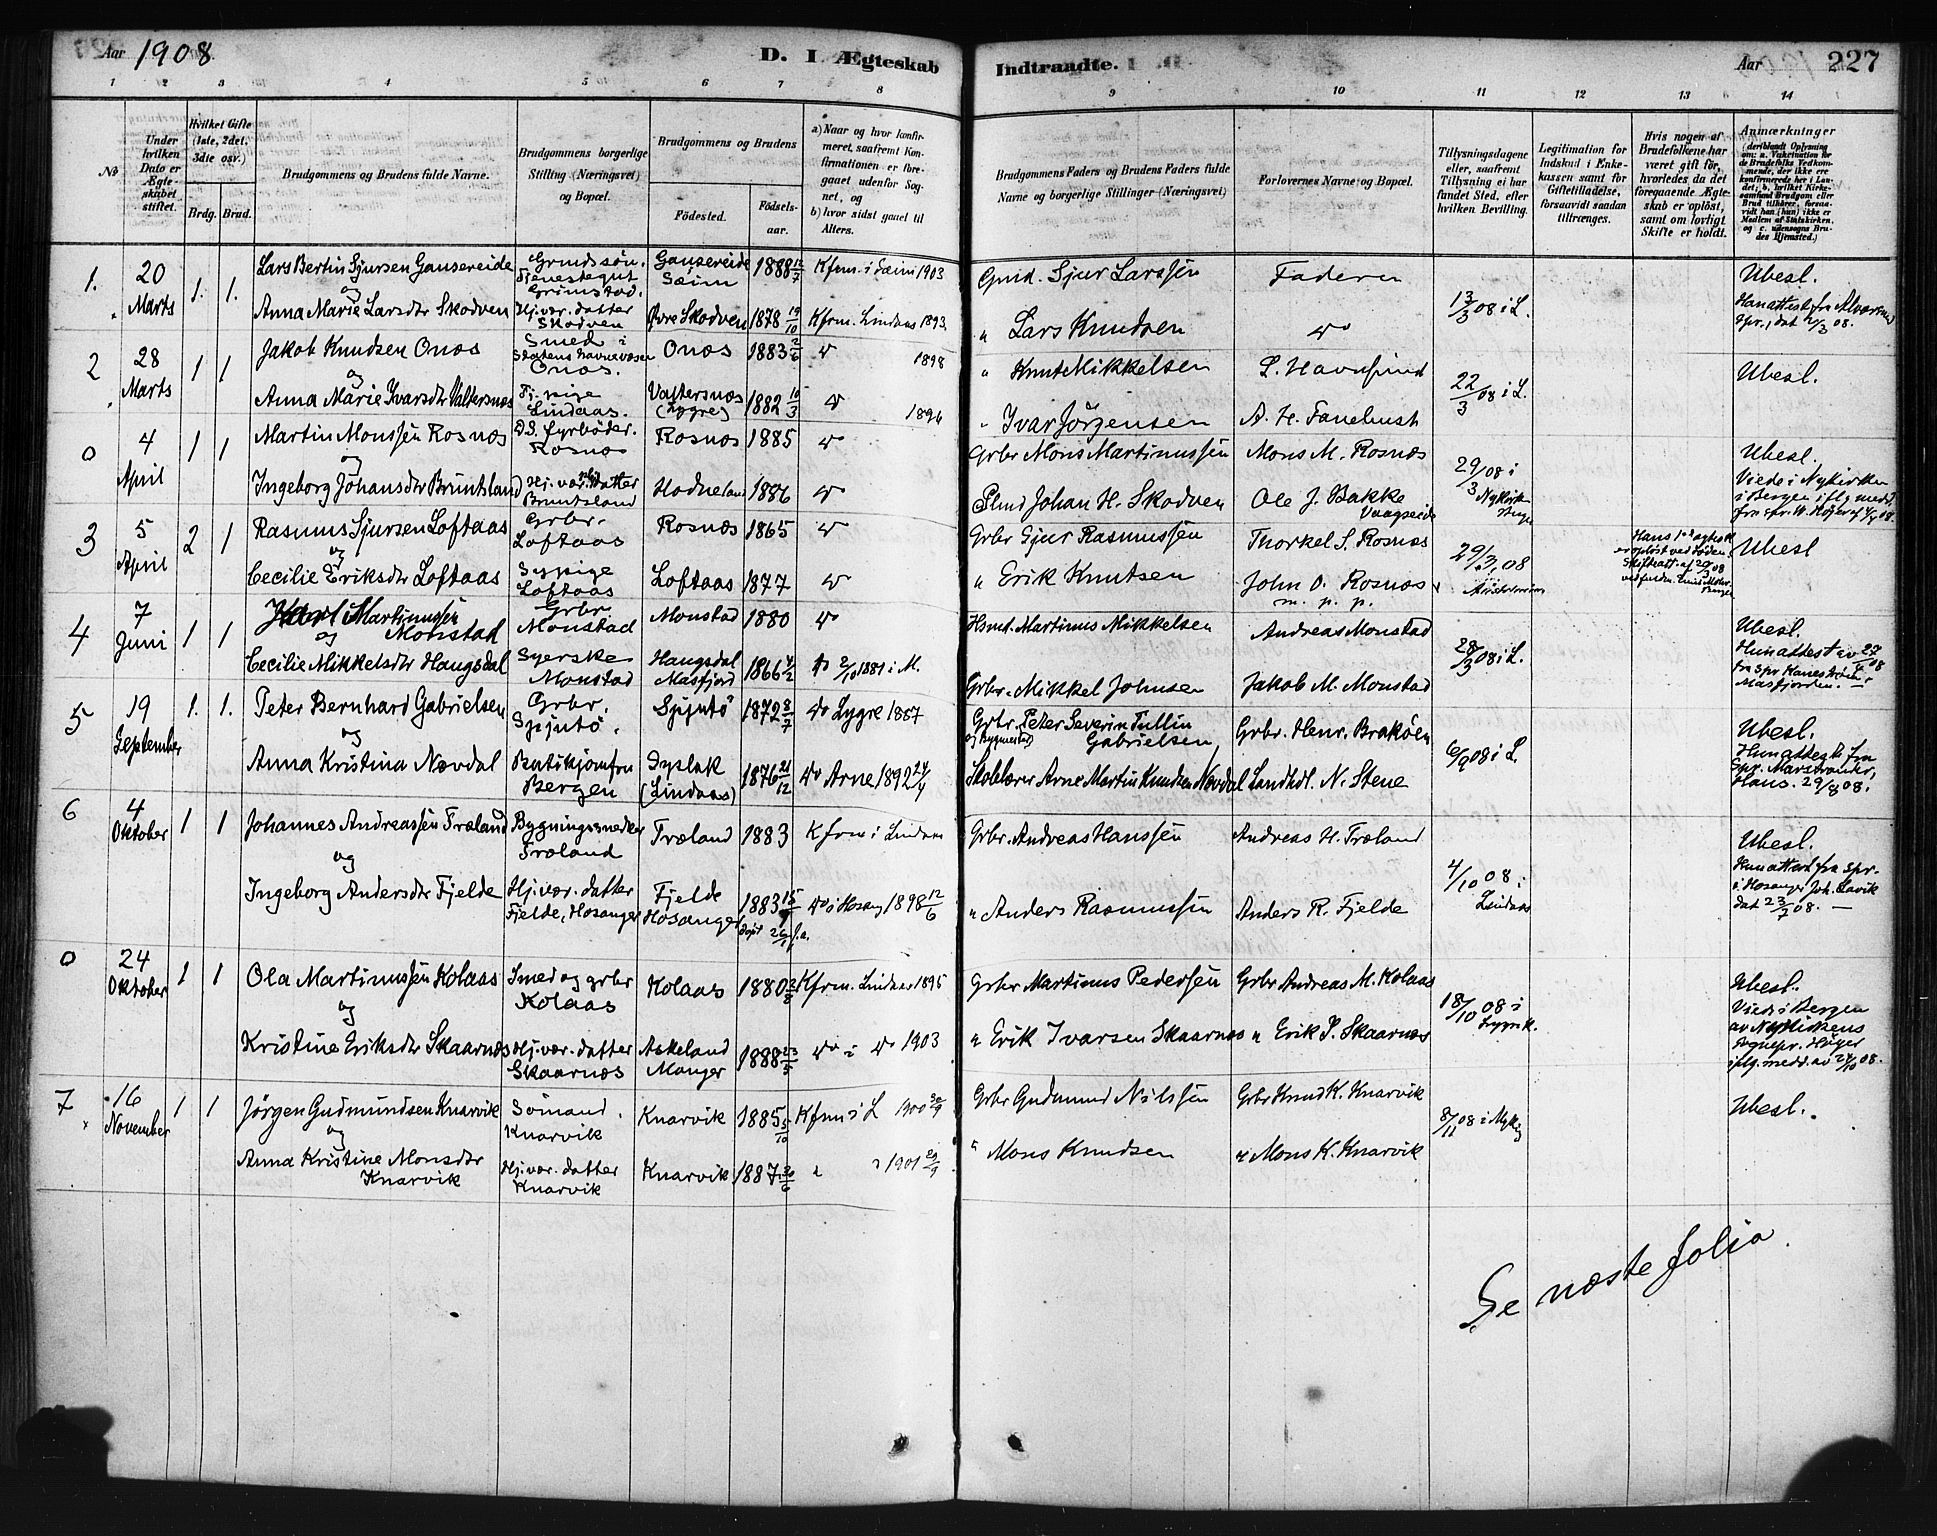 Aar 1908. D. I Ægteskab Indtraadte. Aar 227
1 2 3 4 5 6 7 8 9 10 11 12 13 14
No
Under hvilken Dato er Ægteskabet stiftet.
Hvilket Gifte (1ste, 2det, 3die osv.)
Brdg. Brud.
Brudgommens og Brudens fulde Navne.
Brudgommens borgerlige Stilling (Næringsvei) og Bopæl.
Brudgommens og Brudens
Fødested. Fødselsaar.
a) Naar og hvor konfirmeret, saafremt Konfirmationen er foregaaet udenfor Sognet, og
b) hvor sidst gaaet til Alters.
Brudgommens Faders og Brudens Faders fulde Navne og borgerlige Stillinger (Næringsvei)
Forlovernes Navne og Bopæl.
Tillysningsdagene eller, saafremt Tillysning ei har fundet Sted, efter hvilken Bevilling.
Legitimation for Indskud i Enkekassen samt for Giftetilladelse, forsaavidt saadan tiltrænges.
Hvis nogen af Brudefolkene har været gift før, hvorledes da det foregaaende Ægteskab er opløst, samt om lovligt Skifte er holdt.
Anmærkninger (deriblandt Oplysning om: a. Vakcination for de Brudefolks Vedkommende, der ikke ere konfirmerede her i Landet; b. hvilket Kirkesamfund Brudgom eller Brud tilhører, forsaavidt han (hun) ikke er Medlem af Statskirken, og c. udensogns Brudes Hjemsted.)
1. 20 Marts 1. 1. Lars Bertin Sjursen Gausereide Grundssøn. Tjenestegut Grimstad. Gausereide Sæim 1888 12/7 Kfrm. i Sæim 1903 Gmd. Sjur Larssen Faderen 13/3 08 i L. Ubesl.
og
Anna Marie Larsdtr Skodven Hj.vær. datter Skodven Øvre Skodven 1878 19/10 Kfrm. Lindaas 1893. " Lars Knudsen do
2 28 Marts 1 1 Jakob Knudsen Onæs Smed i Statens havnevæsen Onæs. Onæs 1883 2/6 do 1898 " Knut Mikkelsen L. Havnsund 22/3 08 i L. Ubesl.
og
Anna Marie Ivarsdtr Valtersnæs Tj. pige Lindaas. Valtersnæs (Lygre) 1882 10/3 do 1896 " Ivar Jörgensen A. H. Fanebust
0 4 April 1 1 Martin Monssen Rosnæs D.S. fyrböder. Rosnæs Rosnæs 1885 do Grbr Mons Martinussen Mons M. Rosnæs 29/3 08 i Nykirken Bergen Ubesl. Viede i Nykirken i Bergen iflg medd. fra spr. W. Höyer af 4/4 08.
og
Ingeborg Johansdtr Bruntsland Hj. vær. datter Bruntsland Hodneland 1886 do Plmd Johan H. Skodven Ole J. Bakke Vaagseid
3 5 April 2 1 Rasmus Sjursen Loftaas Grbr. Loftaas Rosnæs 1865 do Grbr Sjur Rasmussen Thorkel S. Rosnæs 29/3 08 Hans 1ste ægtesk. er opløst ved døden. Ubesl
og
Cecilie Eriksdtr Loftaas Sypige Loftaas Loftaas 1877 do " Erik Knutsen John O. Rosnæs m. p. p.
4 7 Juni 1 1 Karl Martinussen Monstad Grbr. Monstad Monstad 1880 do Hsmd. Martinus Mikkelsen Andreas Monstad 28/3 08 i L. Ubesl. Hun attest av 27/5 08 fra spr Kanestrøm i Masfjorden. —
og
Cecilie Mikkelsdtr Haugsdal Syerske Monstad Haugsdal Masfjord 1866 4/2 do 2/10 1881 i M. Grbr. Mikkel Johnsen Jakob M. Monstad
5 19 September 1. 1. Peter Bernhard Gabrielsen Grbr. Spjutö. Spjutö 1872 8/7 do Lygre 1887 Grbr. Peter Severin Tullin Gabrielsen, Grbr. Henr. Braköen 6/9 08 i L. Ubesl. Hun attest fra Spr. Marstrander, Haus. 29/8 08.
og
Anna Kristina Nævdal Butikjomfru Bergen Dyslak (Lindaas) 1876 21/12 do Arne 1892 24/4 Skolelærer Arne Martin Knudsen Nævdal Landhdl. N. Stene
6 4 Oktober 1 1 Johannes Andreassen Træland Bygningssnedker Træland Træland 1883 Kfrm i Lindaas Grbr. Andreas Hanssen Andreas H. Træland 4/10 08 i Lindaas Ubesl. Hun attest fra spr. i Hosanger Joh. Lavik dat 23/7 08. —
og
Ingeborg Andersdtr Fjelde Hj.vær. datter Fjelde, Hosanger Fjelde Hosanger 1883 do i Hosang 1898 12/6 " Anders Rasmussen Anders R. Fjelde
0 24 Oktober 1 1 Ola Martinussen Kolaas Smed og grbr Kolaas Kolaas 1880 3/8 Kfrm. Lindaas 1895 Grbr Martinus Pedersen Grbr Andreas M. Kolaas 18/10 08 i Ubesl. Viede i Bergen av Nykirkens Sognepr. Höyer iflg. medd. av 24/10 08.
og
Kristine Eriksdtr Skaarnæs Hj.vær. datter Skaarnæs Askeland Manger 1888 23/5 do i do 1903 " Erik Ivarsen Skaarnæs " Erik I. Skaarnæs
7 16 November 1 1 Jörgen Gudmundsen Knarvik Sömand. Knarvik Knarvik 1885 5/10 Kfrm i L 1900 30/9 Grbr Gudmund Nilssen Grbr Knud K. Knarvik 8/11 08 i Ubesl.
og
Anna Kristine Monsdtr Knarvik Hj.vær. datter Knarvik Knarvik 1887 30/6 " " 1901 29/9 " Mons Knudsen " Mons K. Knarvik
Se næste folio.